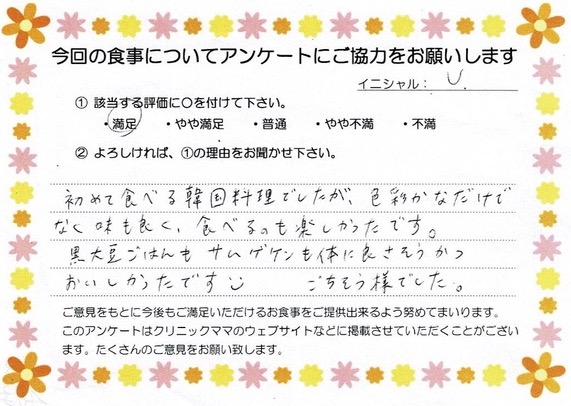 今回の食事についてアンケートにご協力をお願いします
イニシャル： U.
① 該当する評価に○を付けて下さい。
・満足 ・やや満足 ・普通 ・やや不満 ・不満
② よろしければ、①の理由をお聞かせ下さい。
初めて食べる韓国料理でしたが、色彩かなだけで
なく味も良く、食べるのも楽しかったです。
黒大豆ごはんも サムゲケンも体に良さそうかつ
おいしかったです
ごちそう様でした。
ご意見をもとに今後もご満足いただけるお食事をご提供出来るよう努めてまいります。
このアンケートはクリニックママのウェブサイトなどに掲載させていただくことがござい
ます。たくさんのご意見をお願い致します。